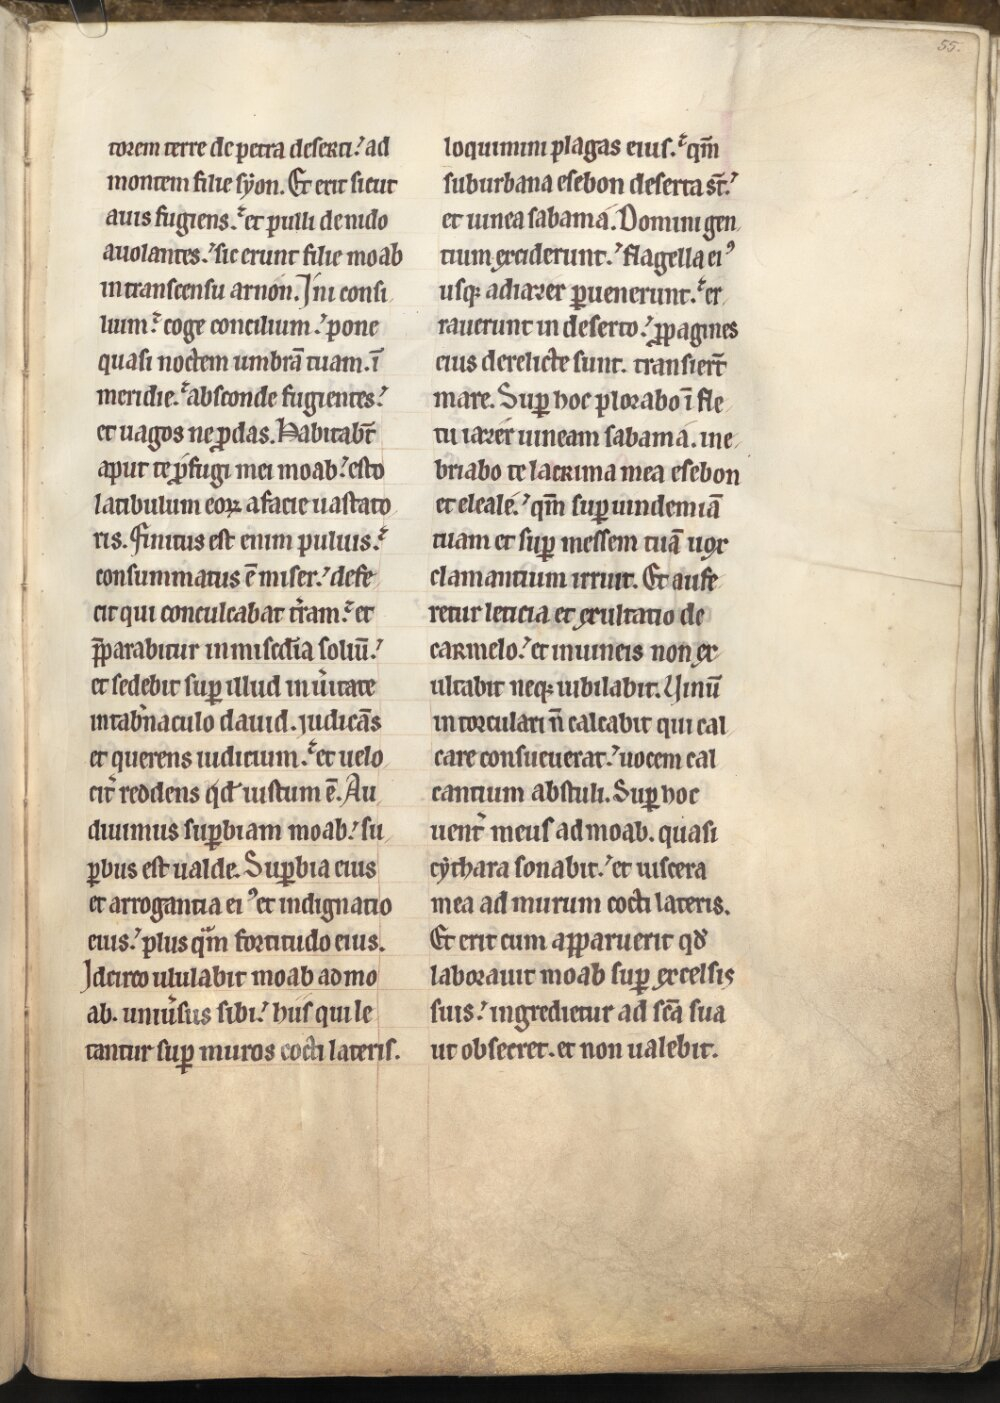 55.
torem terre de petra deserti.ˀ ad
montem filie sẏon. Et erit sicut
auis fugiens.ˀ et pulli de nido
auolantes.ˀ sic erunt filie moab
in transcensu arnón. Ini consi
lium.ˀ coge concilium.ˀ pone
quasi noctem umbrā tuam. ī
meridie.ˀ absconde fugientes.ˀ
et uagos ne ꝓdas. Habitabt̄
aput te ꝓfugi mei moab.ˀ esto
latibulum eoꝝ a facie uastato
ris. Finitus est enim puluis.ˀ
consummatus ē miser.ˀ defe
cit qui conculcabat t̄ram.ˀ et
p̄parabitur in mis̄cdia soliū.ˀ
et sedebit suꝑ illud in ūitate
in tab̄naculo dauid. iudicās
et querens iudicium.ˀ et uelo
cit̄ reddens qd̄ iustum ē. Au
diuimus suꝑbiam moab.ˀ su
ꝑbus est ualde. Suꝑbia eius
et arrogantia eiꝰ et indignatio
eius.ˀ plus qm̄ fortitudo eius.
Idcirco ululabit moab ad mo
ab. uniūsus sibi.ˀ hiis qui le
tantur suꝑ muros cocti lateris.
loquimini plagas eius.ˀ qm̄
suburbana esebon deserta st̄.ˀ
et uinea sabamá. Domini gen
tium exciderunt.ˀ flagella eiꝰ
usqꝫ ad iazér ꝑuenerunt.ˀ er
rauerunt in deserto.ˀ ꝓpagines
eius derelicte sunt. transiert̄
mare. Suꝑ hoc plorabo ī fle
tu iazér uineam sabamá. ine
briabo te lacrima mea esebon
et elealé.ˀ qm̄ suꝑ uindemiā
tuam et suꝑ messem tuā uox
clamantium irruit. Et aufe
retur leticia et exultatio de
carmelo.ˀ et in uineis non ex
ultabit neqꝫ iubilabit. Uinū
in torculari n̄ calcabit qui cal
care consueuerat.ˀ uocem cal
cantium abstuli. Suꝑ hoc
uent̄ meus ad moab. quasi
cẏthara sonabit.ˀ et uiscera
mea ad murum cocti lateris.
Et erit cum apparuerit qd̄
laborauit moab suꝑ excelsis
suis.ˀ ingredietur ad sc̄a sua
ut obsecret. et non ualebit.